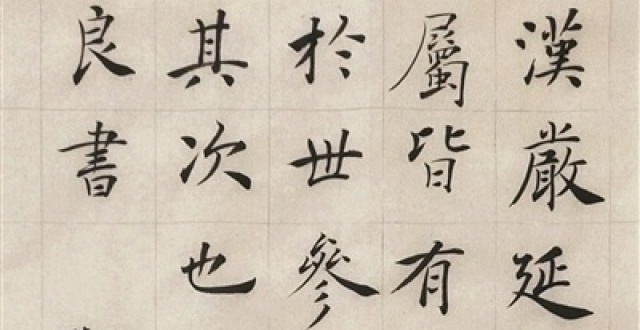 漢嚴延
屬皆有
於世參
其次也
良書